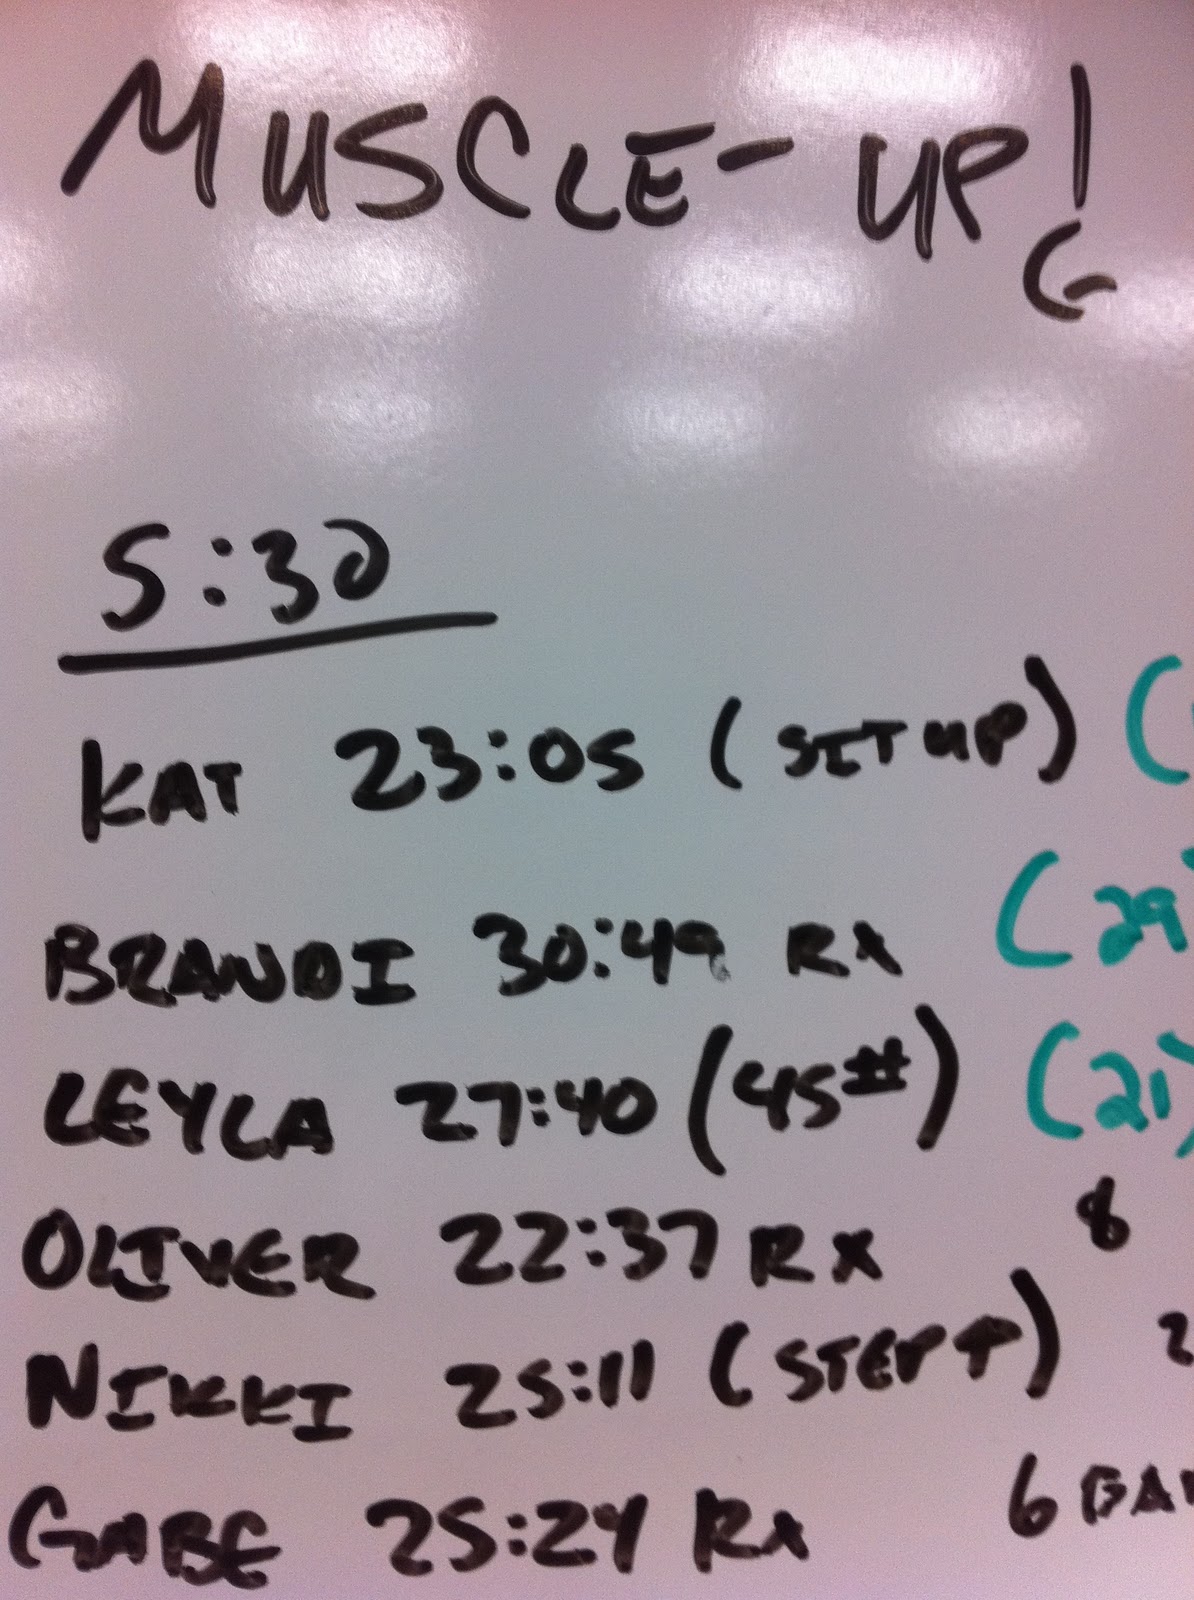 MUSCLE-UP!
G-
5:30
KAT 23:05 (SIT UP) (
BRANDI 30:49 RX (29)
LEYLA 27:40 (45#) (21)
OLIVER 22:37 RX 8
NIKKI 25:11 (STEP ↑) 2
GABE 25:24 RX 6